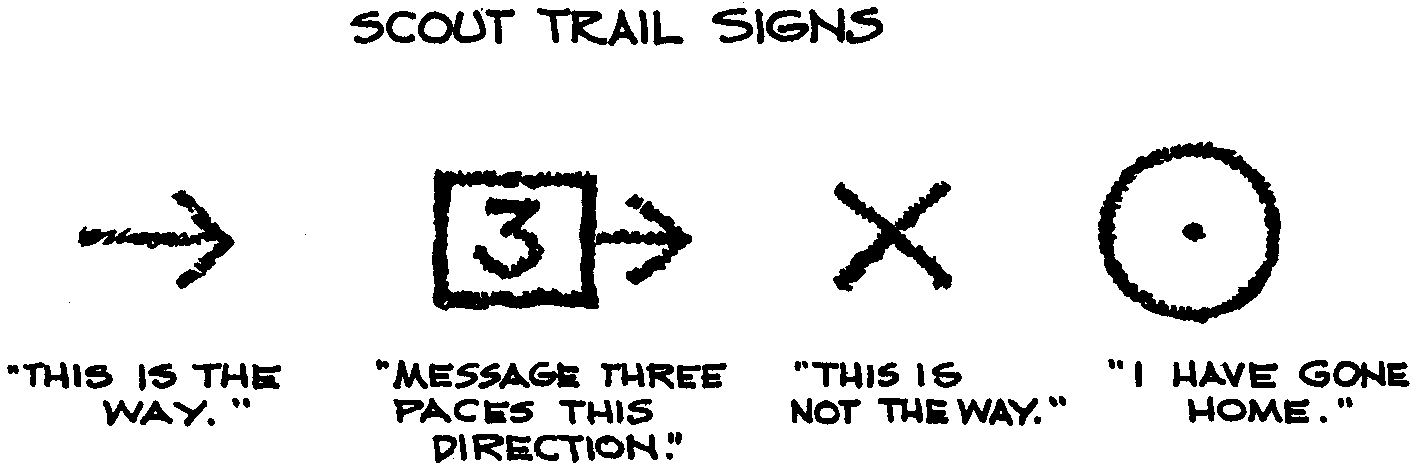 SCOUT TRAIL SIGNS
3
"THIS IS THE
WAY."
"MESSAGE THREE
PACES THIS
DIRECTION."
"THIS IS
NOT THE WAY."
"I HAVE GONE
HOME."